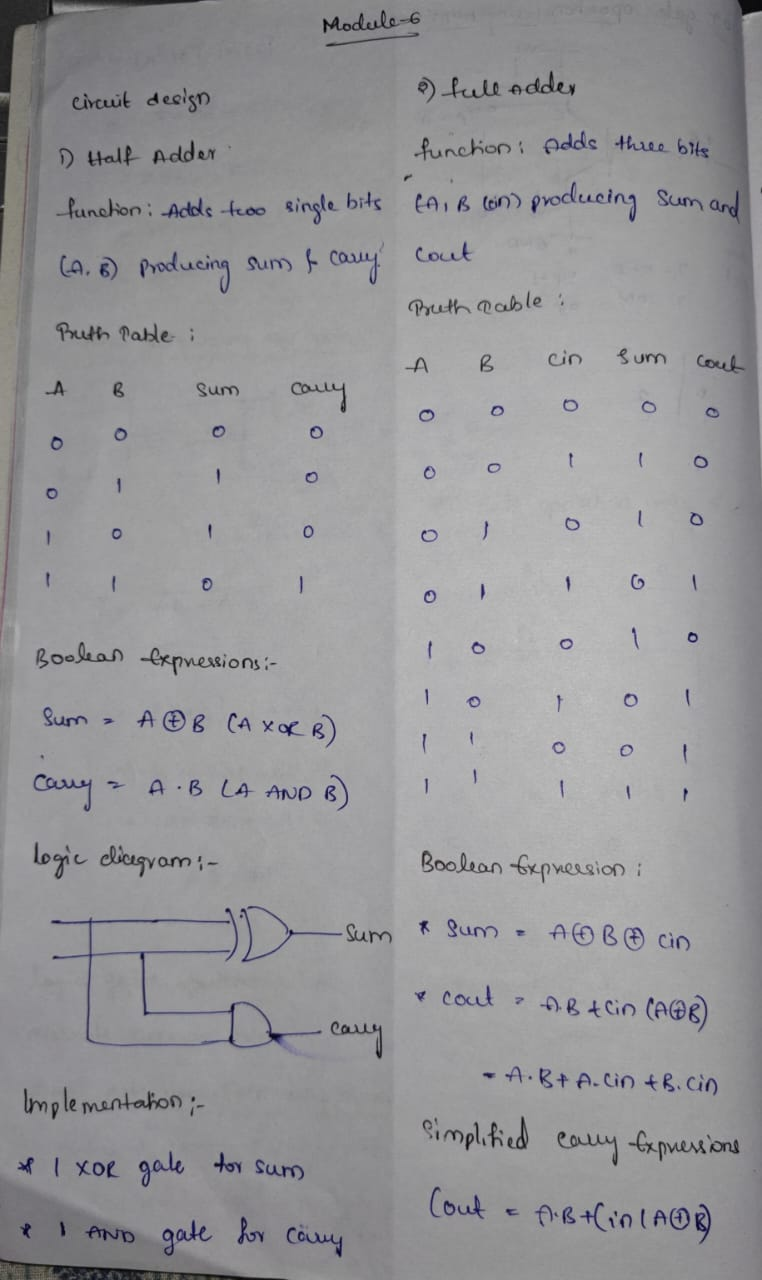 Module-6
Circuit design
1) Half Adder
function: Adds two single bits
(A, B) producing sum & carry
Truth Table :
A B Sum carry
0 0 0 0
0 1 1 0
1 0 1 0
1 1 0 1
Boolean Expressions:-
Sum = A ⊕ B (A XOR B)
Carry = A · B (A AND B)
Logic diagram:-
Sum
carry
Implementation:-
* 1 XOR gate for sum
* 1 AND gate for carry
2) full Adder
function: Adds three bits
(A, B cin) producing Sum and
Cout
Truth Table :
A B cin Sum cout
0 0 0 0 0
0 0 1 1 0
0 1 0 1 0
0 1 1 0 1
1 0 0 1 0
1 0 1 0 1
1 1 0 0 1
1 1 1 1 1
Boolean Expression :
* Sum = A ⊕ B ⊕ cin
* cout = A.B + cin (A⊕B)
= A.B + A.cin + B.cin
Simplified carry Expressions
Cout = A.B + Cin (A⊕B)